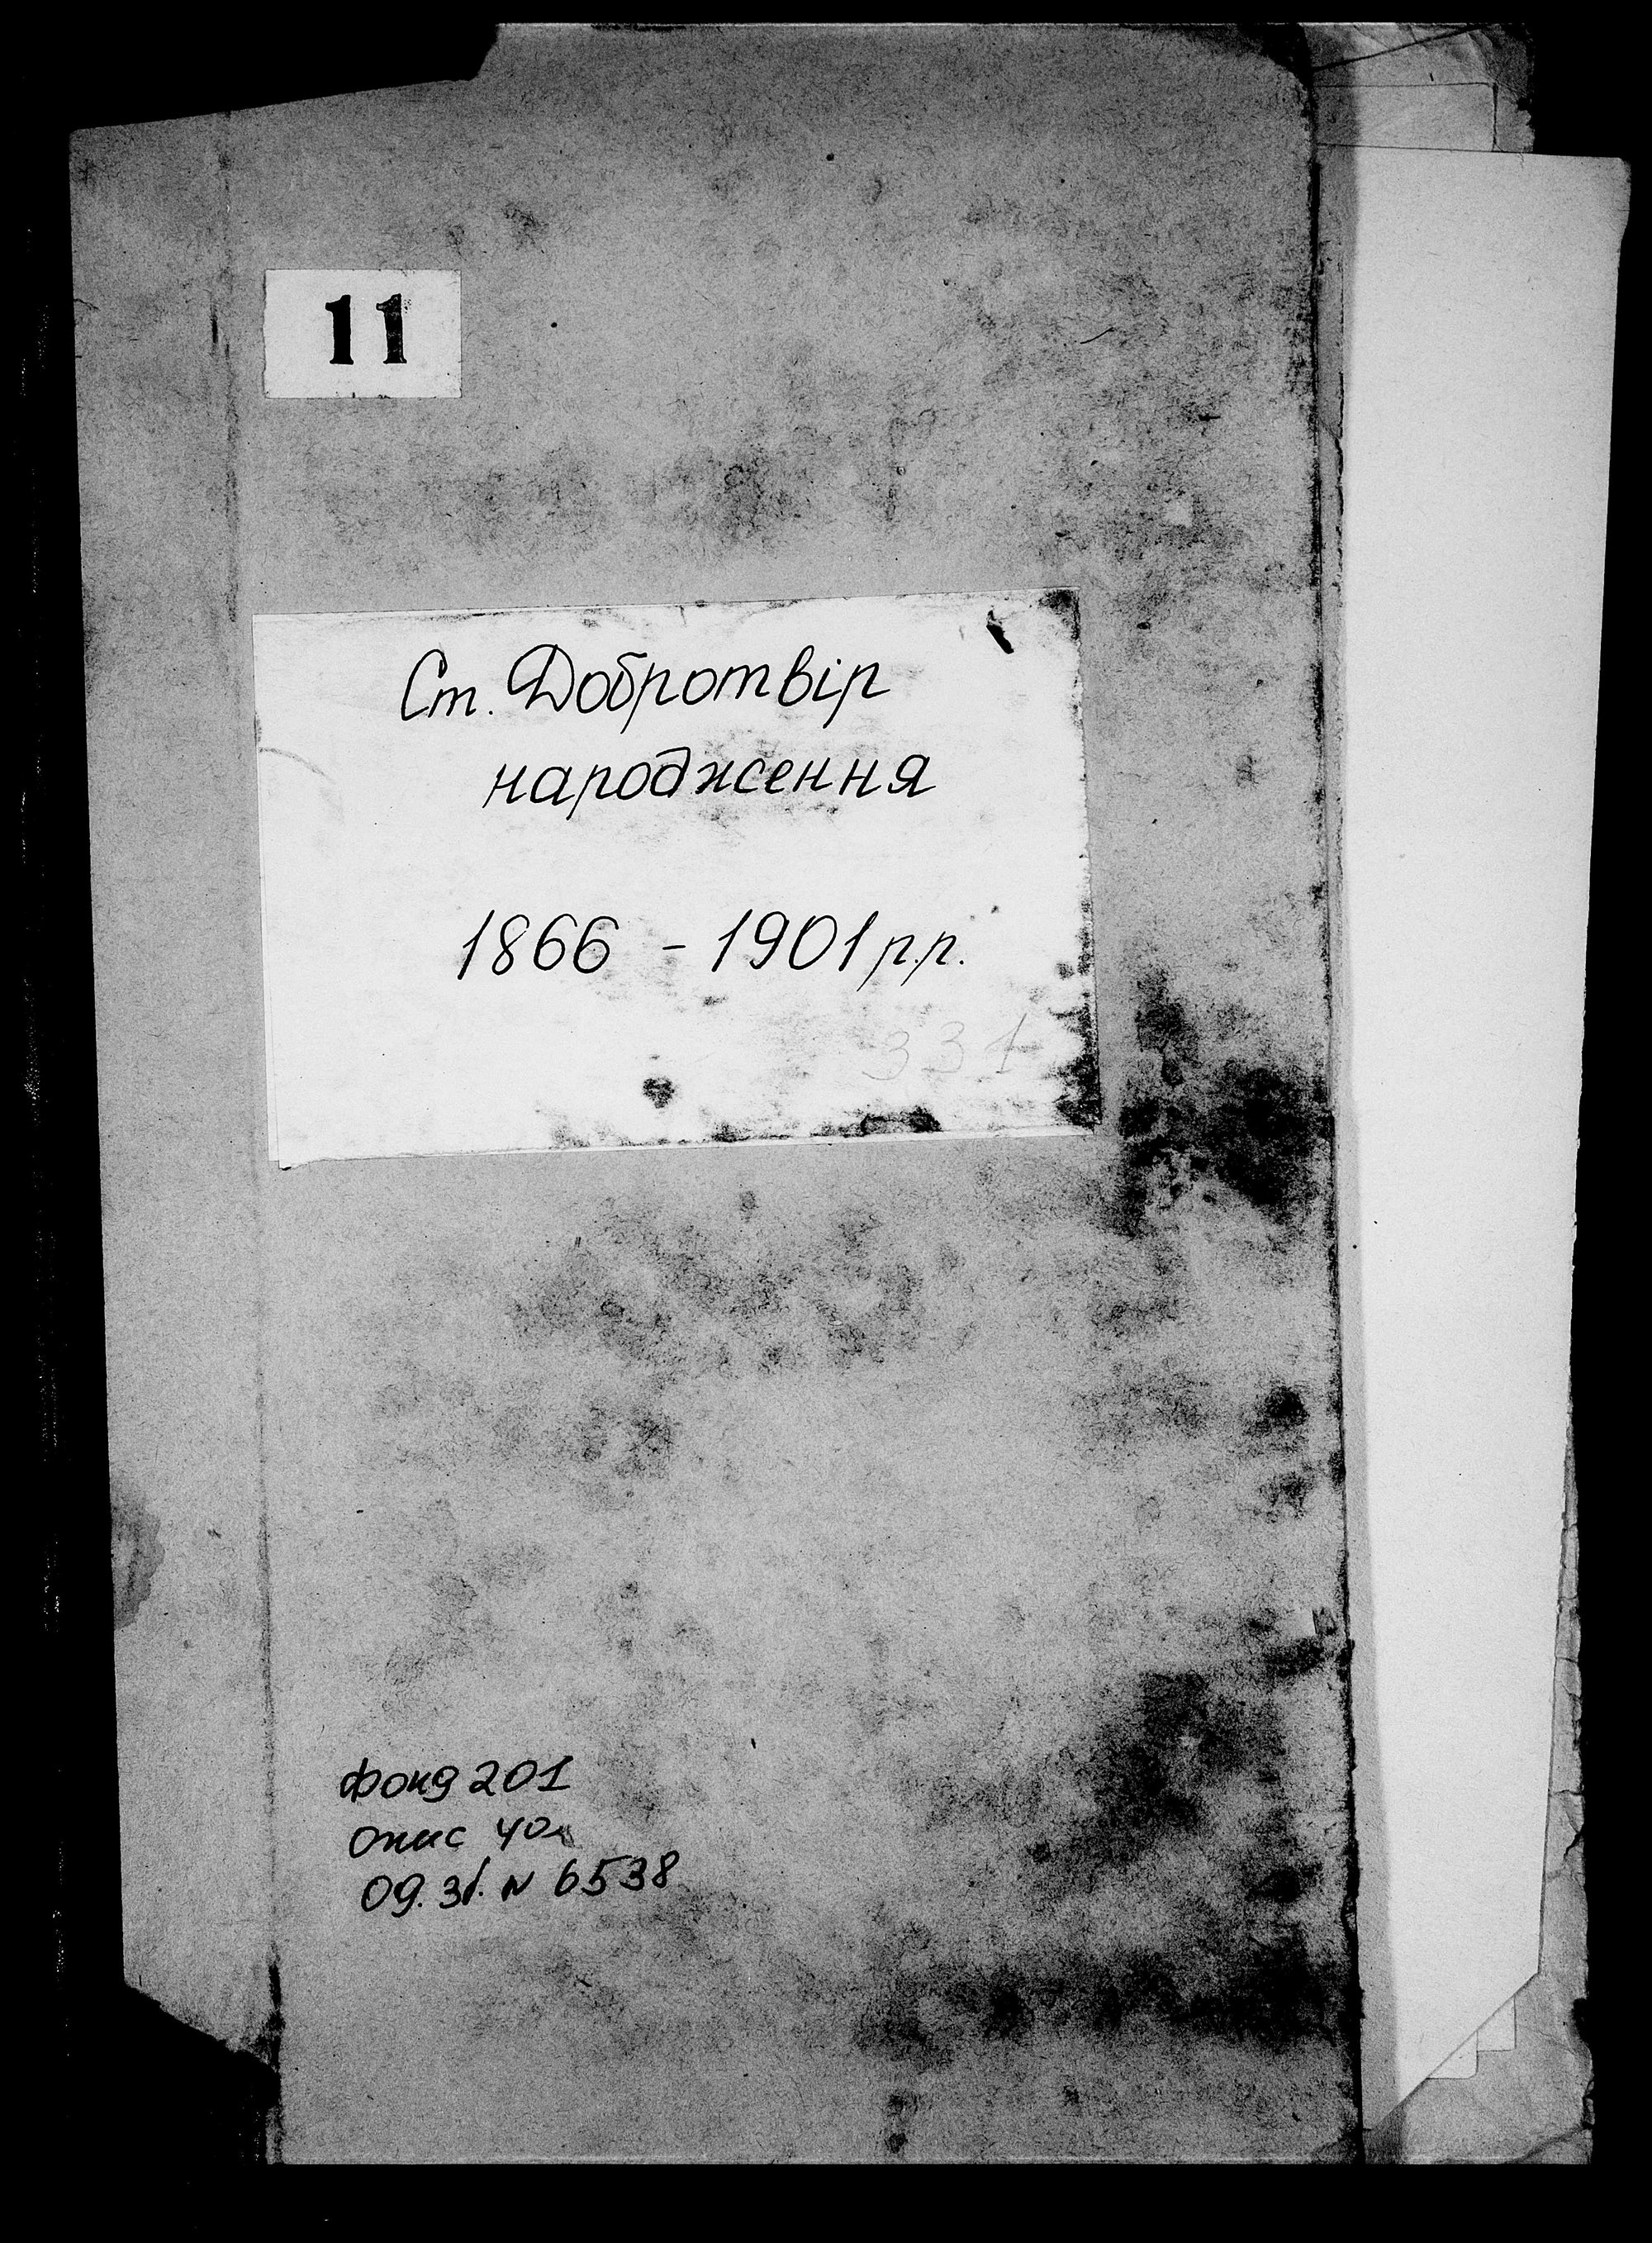 11
Ст. Добротвір
народження
1866 - 1901 р.р.
331
фонд 201
опис 4а
од. зб. N 6538